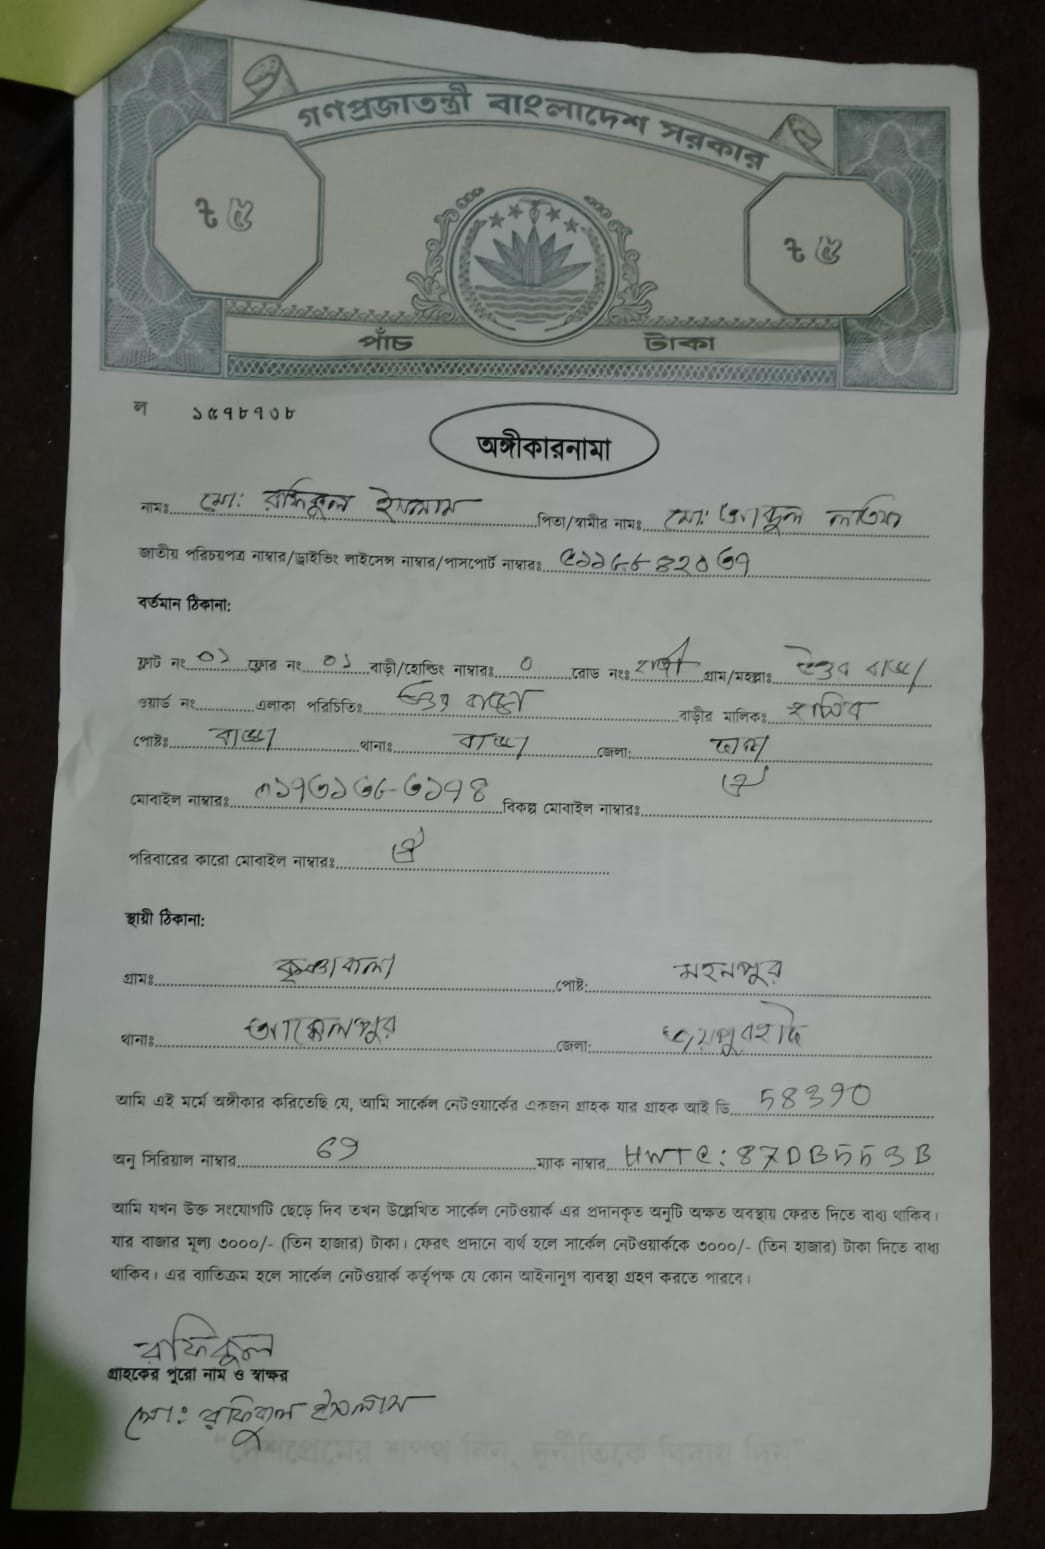 গণপ্রজাতন্ত্রী বাংলাদেশ সরকার
৳ ৫ ৳ ৫
পাঁচ টাকা
ল ১৫৭৮৭০৮
অঙ্গীকারনামা
নামঃ মো: রফিকুল ইসলাম পিতা/স্বামীর নামঃ মো: আব্দুল লতিফ
জাতীয় পরিচয়পত্র নাম্বার/ড্রাইভিং লাইসেন্স নাম্বার/পাসপোর্ট নাম্বারঃ
বর্তমান ঠিকানা:
ফ্লাট নং ০১ ফ্লোর নং ০১ বাড়ী/হোল্ডিং নাম্বারঃ ০ রোড নংঃ গ্রাম/মহল্লাঃ উত্তর বাড্ডা
ওয়ার্ড নং এলাকা পরিচিতিঃ উত্তর বাড্ডা বাড়ীর মালিকঃ
পোষ্টঃ বাড্ডা থানাঃ বাড্ডা জেলা: ঢাকা
মোবাইল নাম্বারঃ বিকল্প মোবাইল নাম্বারঃ ঐ
পরিবারের কারো মোবাইল নাম্বারঃ ঐ
স্থায়ী ঠিকানা:
গ্রামঃ পোষ্ট:
থানাঃ আক্কেলপুর জেলা: জয়পুরহাট
আমি এই মর্মে অঙ্গীকার করিতেছি যে, আমি সার্কেল নেটওয়ার্কের একজন গ্রাহক যার গ্রাহক আই ডি 58390
অনু সিরিয়াল নাম্বার 69 ম্যাক নাম্বার HWTC: 87DB553B
আমি যখন উক্ত সংযোগটি ছেড়ে দিব তখন উল্লেখিত সার্কেল নেটওয়ার্ক এর প্রদানকৃত অনুটি অক্ষত অবস্থায় ফেরত দিতে বাধ্য থাকিব।
যার বাজার মূল্য ৩০০০/- (তিন হাজার) টাকা। ফেরৎ প্রদানে ব্যর্থ হলে সার্কেল নেটওয়ার্ককে ৩০০০/- (তিন হাজার) টাকা দিতে বাধ্য
থাকিব। এর ব্যতিক্রম হলে সার্কেল নেটওয়ার্ক কর্তৃপক্ষ যে কোন আইনানুগ ব্যবস্থা গ্রহণ করতে পারবে।
রফিকুল
গ্রাহকের পুরো নাম ও স্বাক্ষর
মো: রফিকুল ইসলাম
"দেশপ্রেমের শপথ নিন, দুর্নীতিকে বিদায় দিন"